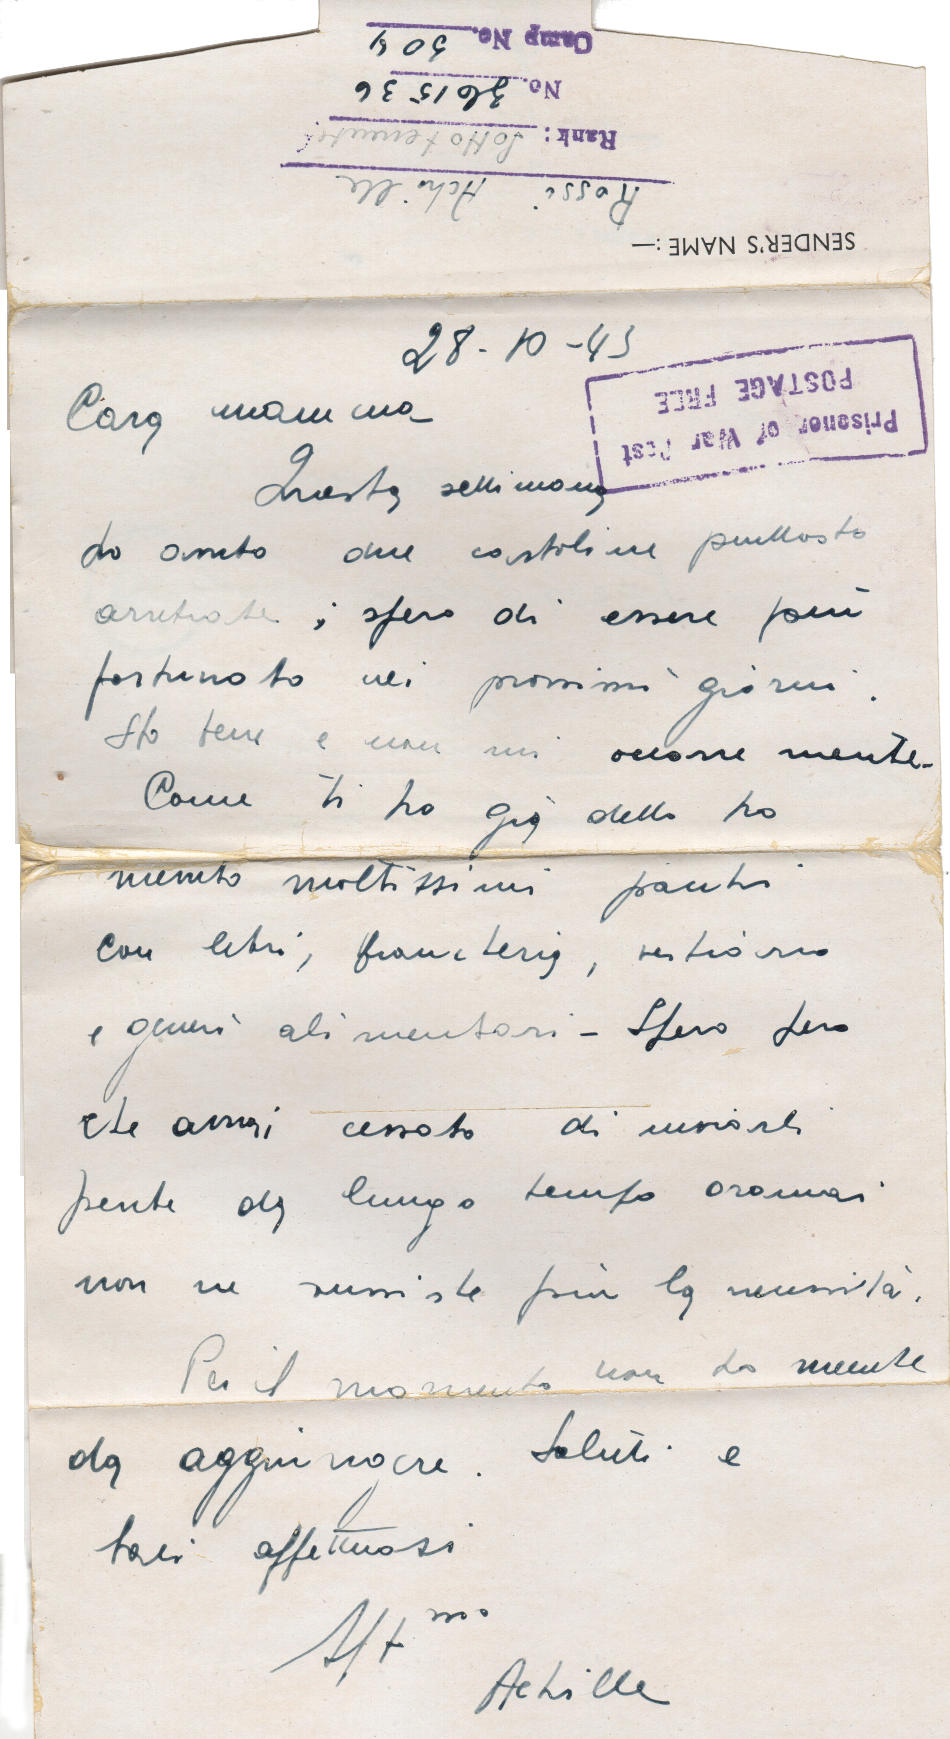 SENDER'S NAME:—
Rossi Achille
Rank: Sottotenente
No. 361536
Camp No. 304
28-10-45
Prisoner of War Post
POSTAGE FREE
Cara mamma
Questa settimana
ho avuto due cartoline piuttosto
arretrate; spero di essere più
fortunato nei prossimi giorni.
Sto bene e non mi occorre niente-
Come ti ho già detto ho
ricevuto moltissimi pacchi
con libri, biancheria, vestiario
e generi alimentari - Spero pero
che avrai cessato di inviarli
perche da lungo tempo oramai
non ne sussiste più la necessità.
Per il momento non ho niente
da aggiungere. Saluti e
baci affettuosi
Aff mo
Achille